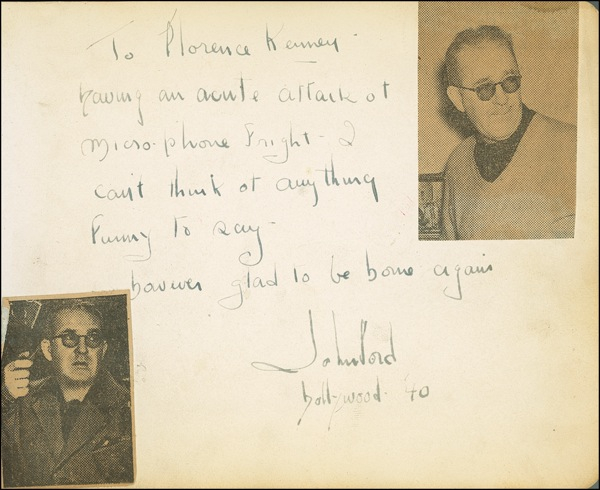 To Florence Kenney -
having an acute attack of
micro-phone fright - I
can't think of anything
funny to say -
however glad to be home again
John Ford
hollywood - 40